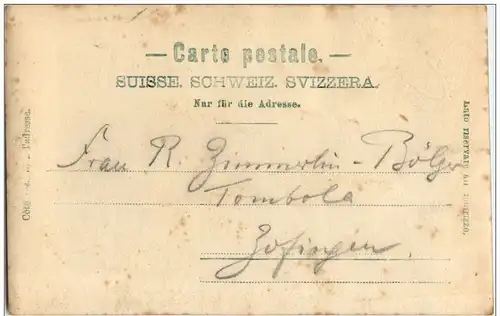 — Carte postale. —
SUISSE. SCHWEIZ. SVIZZERA.
Nur für die Adresse.
Frau R. Zimmerlin-Bölger
Tombola
Zofingen.
Côté l'adresse.
Lato riservato all' indirizzo.